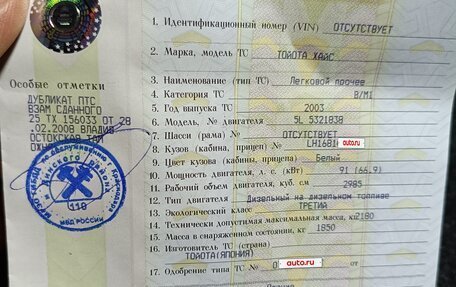 1. Идентификационный номер (VIN) ОТСУТСТВУЕТ
2. Марка, модель ТС ТОЙОТА ХАЙС
3. Наименование (тип ТС) Легковой прочее
4. Категория ТС B/M1
5. Год выпуска ТС 2003
6. Модель, № двигателя 5L 5321838
7. Шасси (рама) № ОТСУТСТВУЕТ
8. Кузов (кабина, прицеп) № LH1681 auto.ru
9. Цвет кузова (кабины, прицепа) Белый
10. Мощность двигателя, л. с. (кВт) 91 (66.9)
11. Рабочий объем двигателя, куб. см 2985
12. Тип двигателя Дизельный на дизельном топливе
13. Экологический класс ТРЕТИЙ
14. Технически допустимая максимальная масса, кг 2180
15. Масса в снаряженном состоянии, кг 1850
16. Изготовитель ТС (страна)
ТОЙОТА(ЯПОНИЯ)
17. Одобрение типа ТС № 0 auto.ru от
Особые отметки
ДУБЛИКАТ ПТС
ВЗАМ СДАННОГО
25 ТХ 156033 ОТ 28
.02.2008 ВЛАДИВ
ОСТОКСКАЯ ТАМ
118
МВД РОССИИ